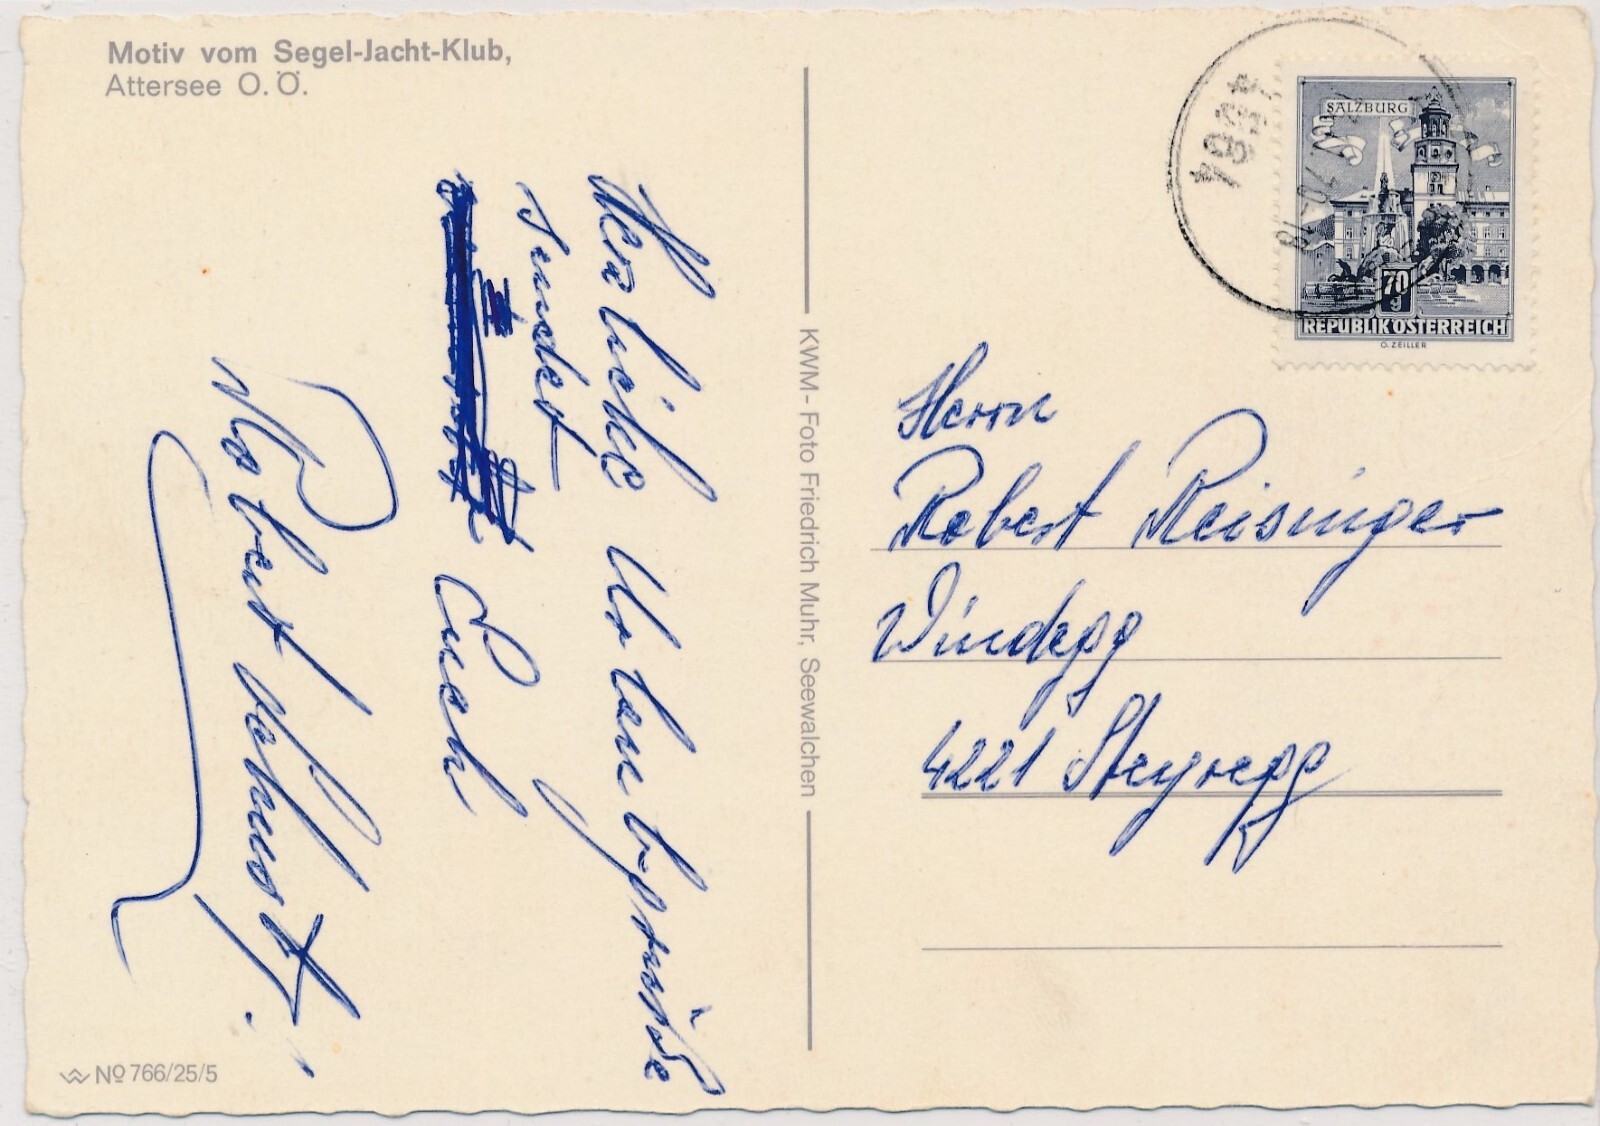 Motiv vom Segel-Jacht-Klub,
Attersee O.Ö.
Herzliche Urlaubsgrüße
sendet
Euch
Robert
KWM - Foto Friedrich Muhr, Seewalchen
№ 766/25/5
SALZBURG
70
g
REPUBLIK ÖSTERREICH
O. ZEILLER
Herrn
Robert Reisinger
Windegg
4221 Steyregg